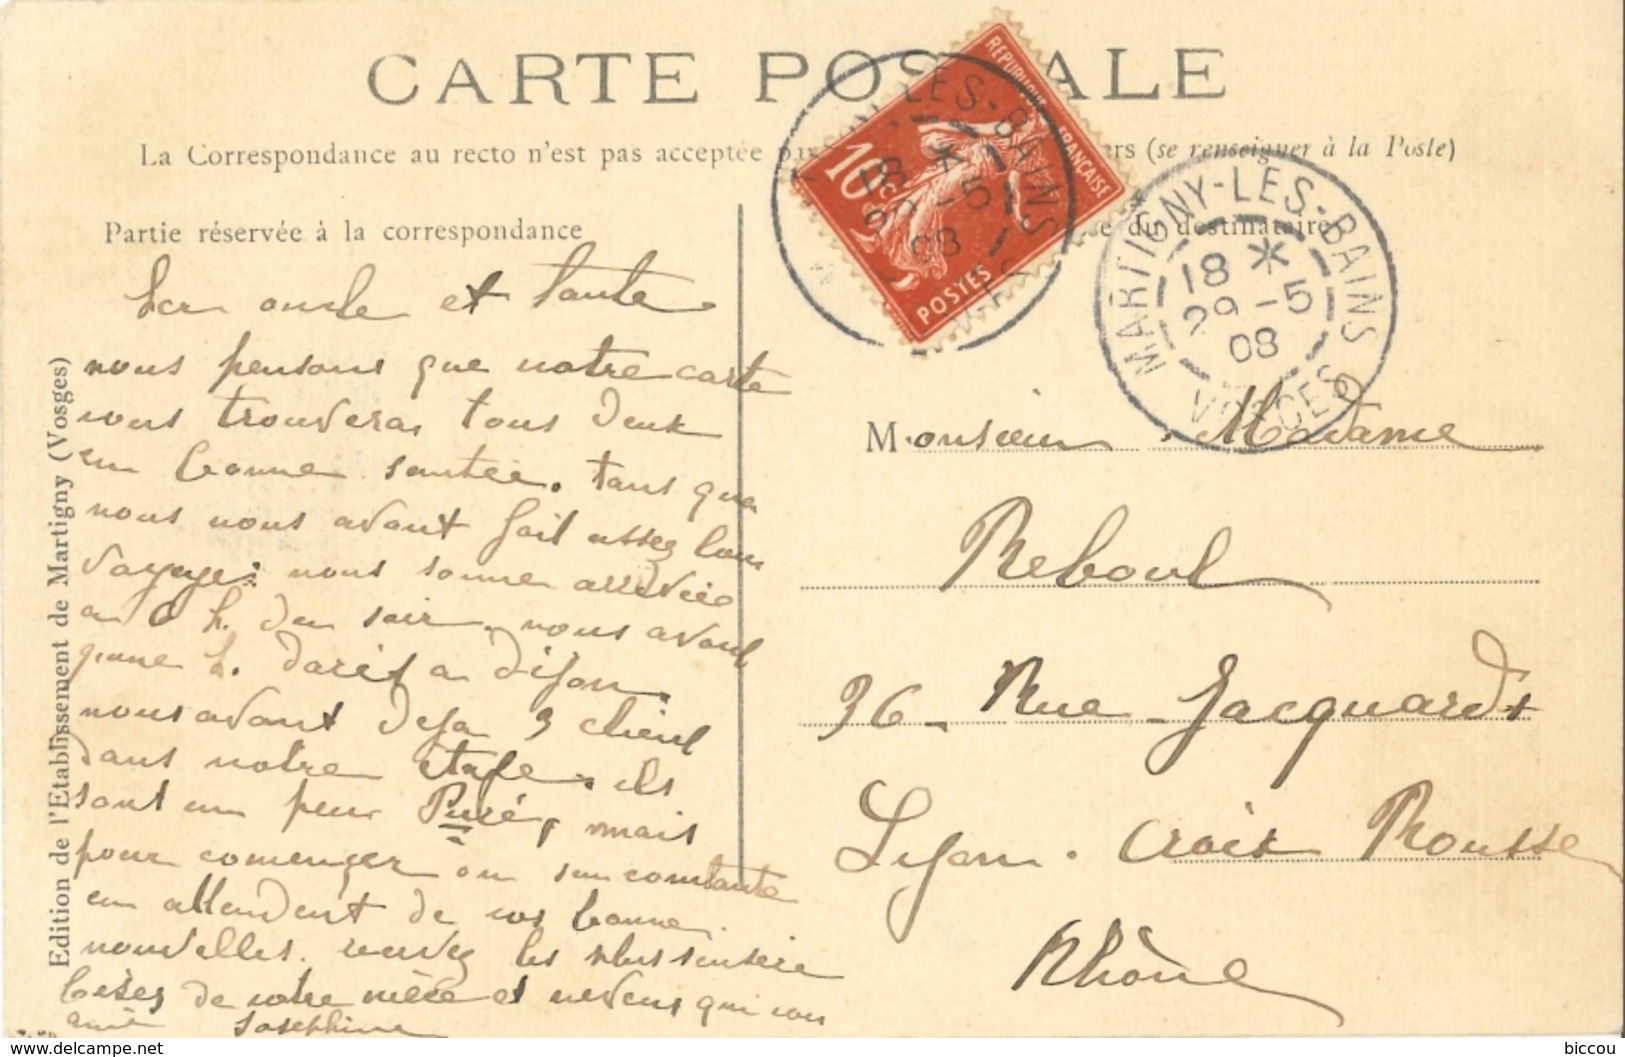 CARTE POSTALE
La Correspondance au recto n'est pas acceptée p rs (se renseigner à la Poste)
Partie réservée à la correspondance
e du destinataire
REPUBLIQUE FRANÇAISE
10 c
POSTES
LES-BAINS
18 *
29 -5
08
MARTIGNY-LES-BAINS
18 *
29 -5
08
VOSGES
Edition de l'Etablissement de Martigny (Vosges)
oncle et Tante
nous pensons que notre carte
vous trouvera tous deux
en bonne santée. tans que
nous nous avont fait assez bon
voyage: nous somme arrivée
a 6 h. du soir. nous avont
h. d'arêt a Dijon.
nous avont deja 3 client
dans notre étage. ils
sont un peu Puré, mais
pour comencer on sen contante
en attendent de vos bonne
nouvelles. recevez les plus sincère
bises de votre nièce et neveux qui vous
aime Josephine
Monsieur Madame
Reboul
36 - Rue Jacquard
Lyon. Croix Rousse
Rhône
Delcampe.net
biccou